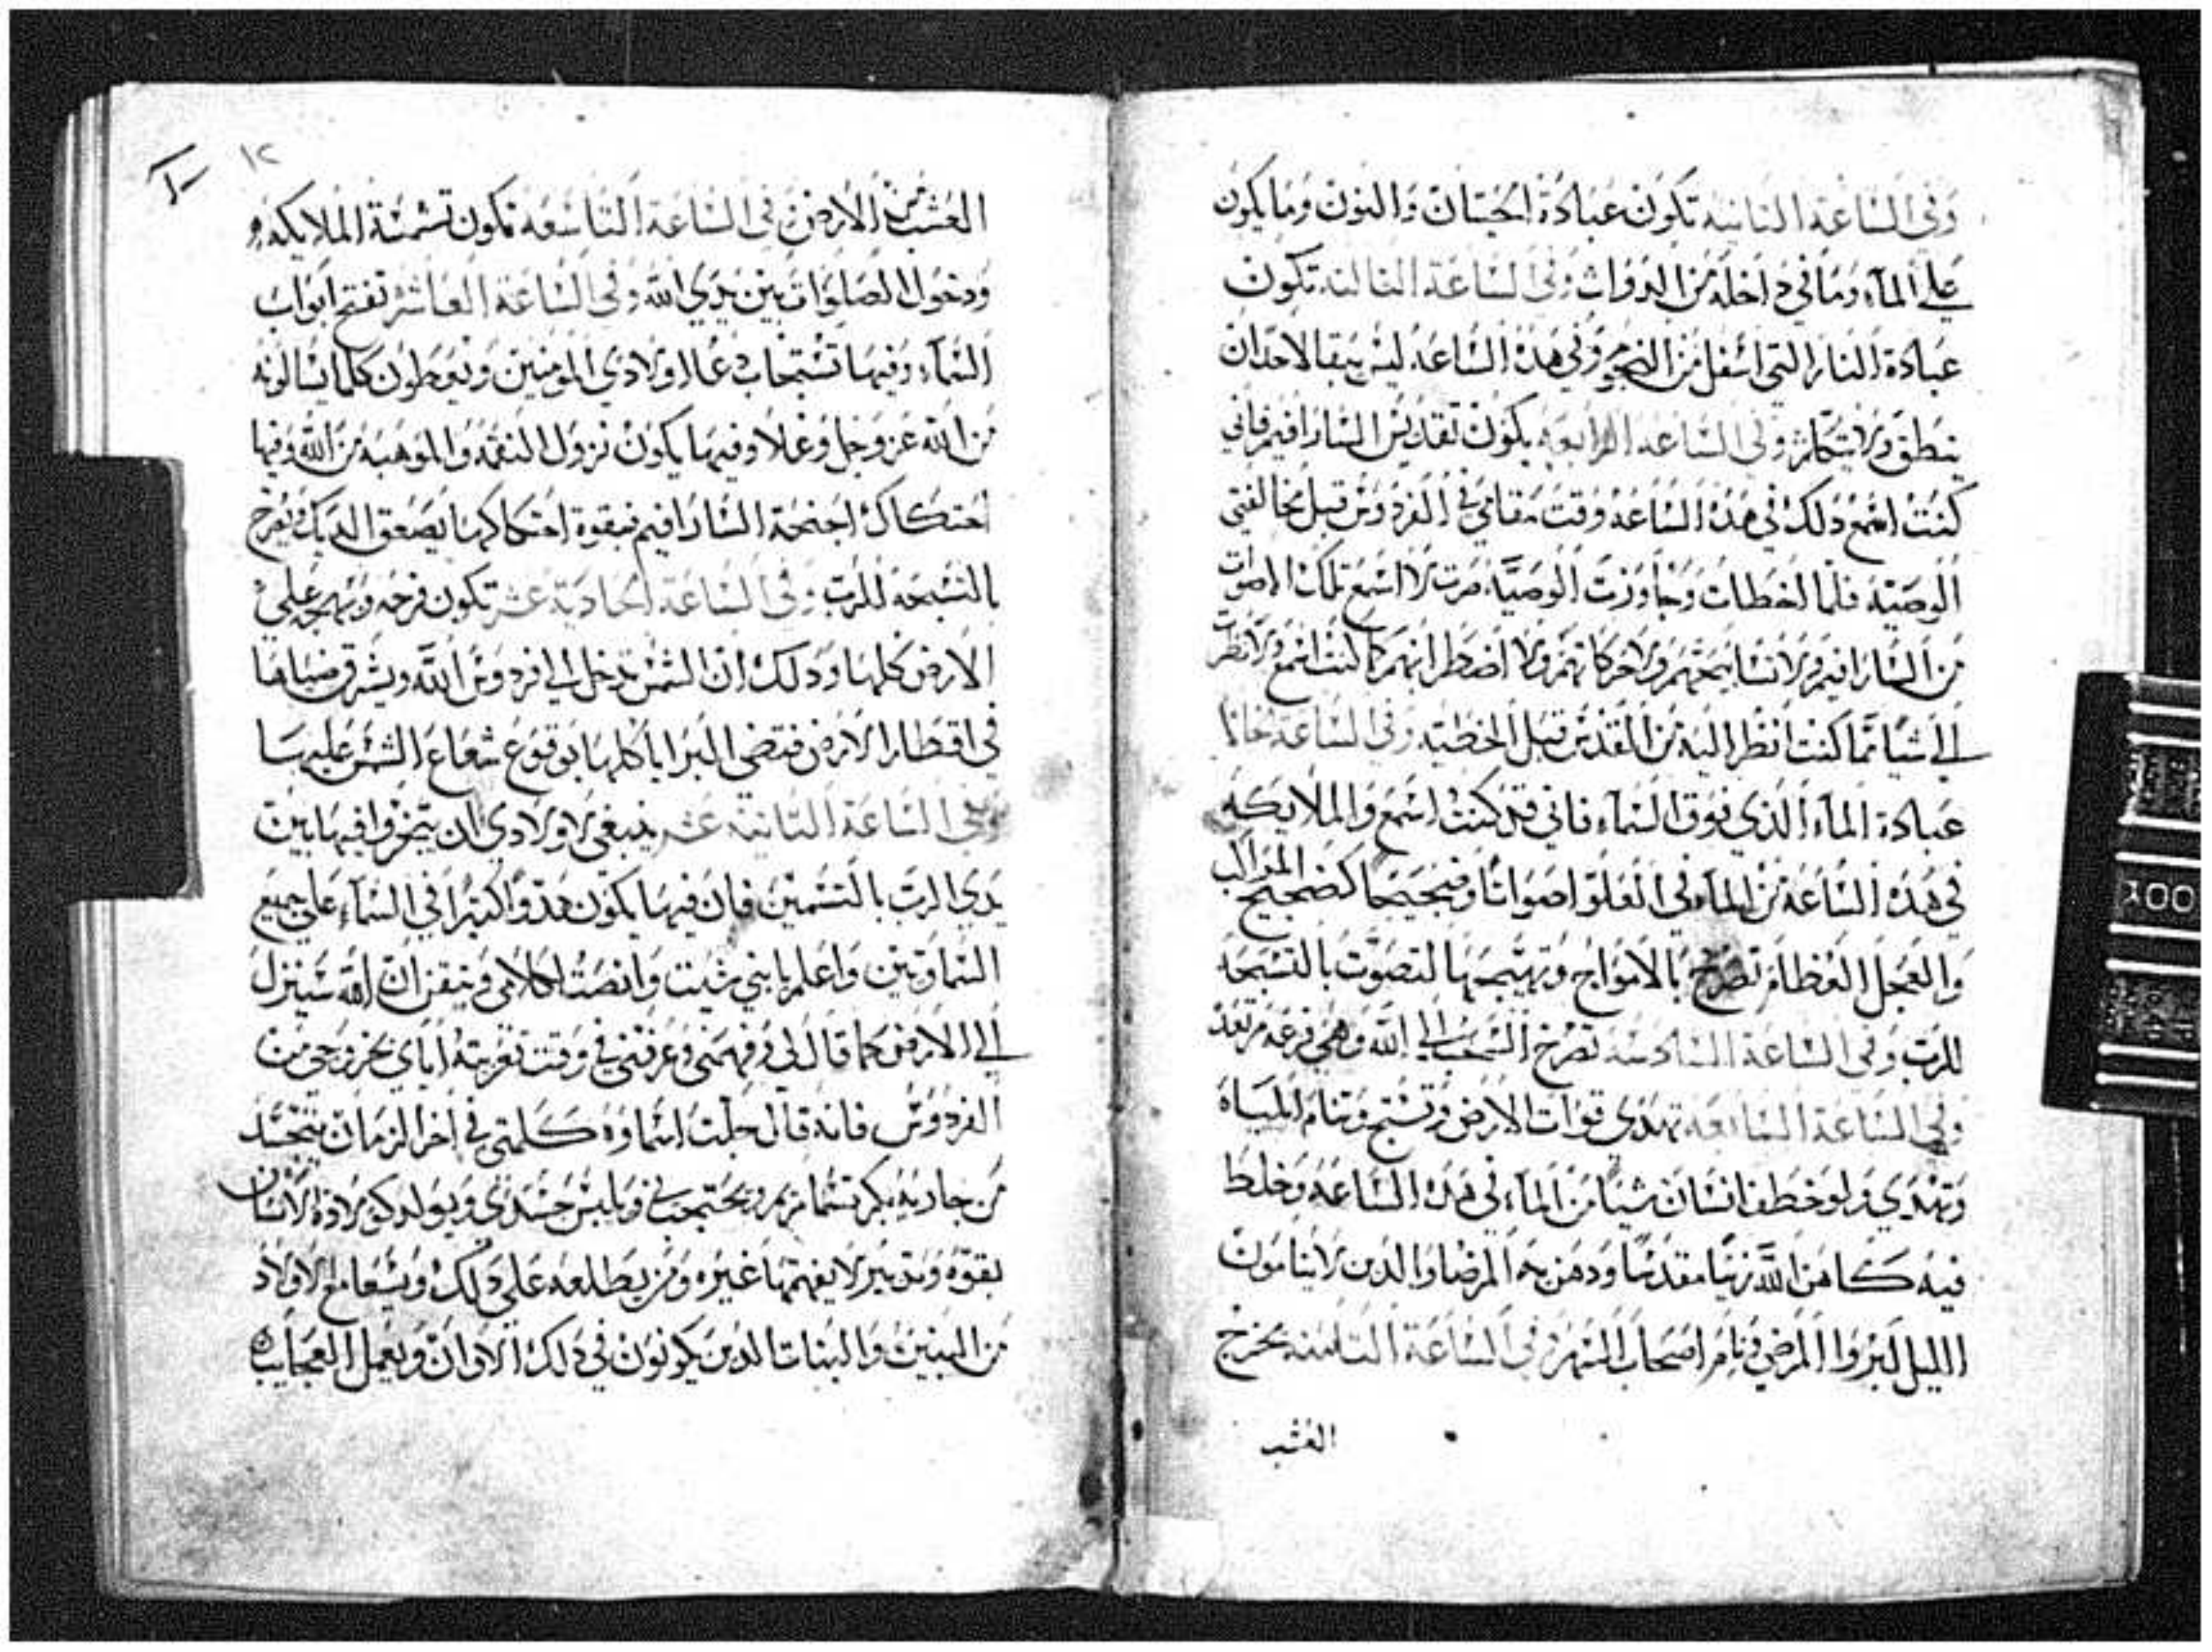 وفي الساعة الثانية تكون عبادة الحيتان والنون وما يكون
علي المآء وما في داخله من الدواب وفي الساعة الثالثة تكون
عبادة النار التي اسفل من النجوم وفي هذه الساعة ليس يبقا لاحدان
ينطق ولا يتكلم وفي الساعه الرابعه يكون تقديس السارافيم فاني
كنت اسمع ذلك في هذه الساعه وقت مقامي في الفردوس قبل مخالفتي
الوصية فلما اخطات وجاوزت الوصية صرت لا اسمع تلك الاصوات
من السارافيم ولا تسابيحهم ولا حركاتهم ولا اضطرابهم كما كنت اسمع ولا نظر
الي شيا مما كنت انظر اليه من القدس قبل الخطيه وفي الساعة
عبادة المآء الذي فوق السمآء فاني قد كنت اسمع والملايكه
في هذه الساعة من المآء في العلو اصواتا وضجيجا كضجيج المراكب
والعجل العظام تصرخ بالامواج وتهييجها لتصوت بالتسبحه
للرب وفي الساعة السادسه تصرخ السحب الي الله وهي فزعه مرتعده
وفي الساعة السابعه تهدي قوات الارض وتسبح وتنام المياه
وتهدي ولو خطف انسان شيا من المآء في هذه الساعه وخلط
فيه كاهن الله زيتا مقدسا ودهن به المرضا والذين لا يناموون
الليل لبروا المرضي ونام اصحاب السهر وفي الساعة الثامنه يخرج
العشب
١٢
العشب من الارض وفي الساعة التاسعه تكون تشمسة الملايكه
ودخول الصلوات بين يدي الله وفي الساعة العاشر تفتح ابواب
السمآء وفيها تستجاب دعا اولادي المومنين ويعطون كلما يسالونه
من الله عز وجل وعلا وفيها يكون نزول النقمه والموهبه من الله وفيها
احتكاك اجنحة السارافيم فبقوة احتكاكها يصعق الديك ويفرح
بالتسبحه للرب وفي الساعة الحادية عشر تكون فرحه وبهجه علي
الارض كلها وذلك ان الشمس تدخل الي فردوس الله ويشرق ضياها
في اقطار الارض فتضي البرايا كلها بوقوع شعاع الشمس عليها
وفي الساعة الثانيه عشر ينبغي لاولادي ان يتبخروا فيها بين
يدي الرب بالتشميس فان فيها يكون هدوا كبيرا في السمآء علي جميع
السماويين واعلم يابني شيت وانصت لكلامي وتيقن ان الله سينزل
الي الارض كما قال لي وفهمني وعرفني في وقت تعزيته اياي بخروجي من
الفردوس فانه قال جلت اسماوه كلمتي في اخر الزمان يتجسد
من جاريه بكر تسما مريم ويحتجب في ويلبس جسدي ويولد كولادة الانسان
بقوة وتدبير لا يفهمها غيره ومن يطلعه علي ذلك ويسعا مع الاولاد
من البنين والبنات الذين يكونون في ذلك الاوان ويعمل العجايب